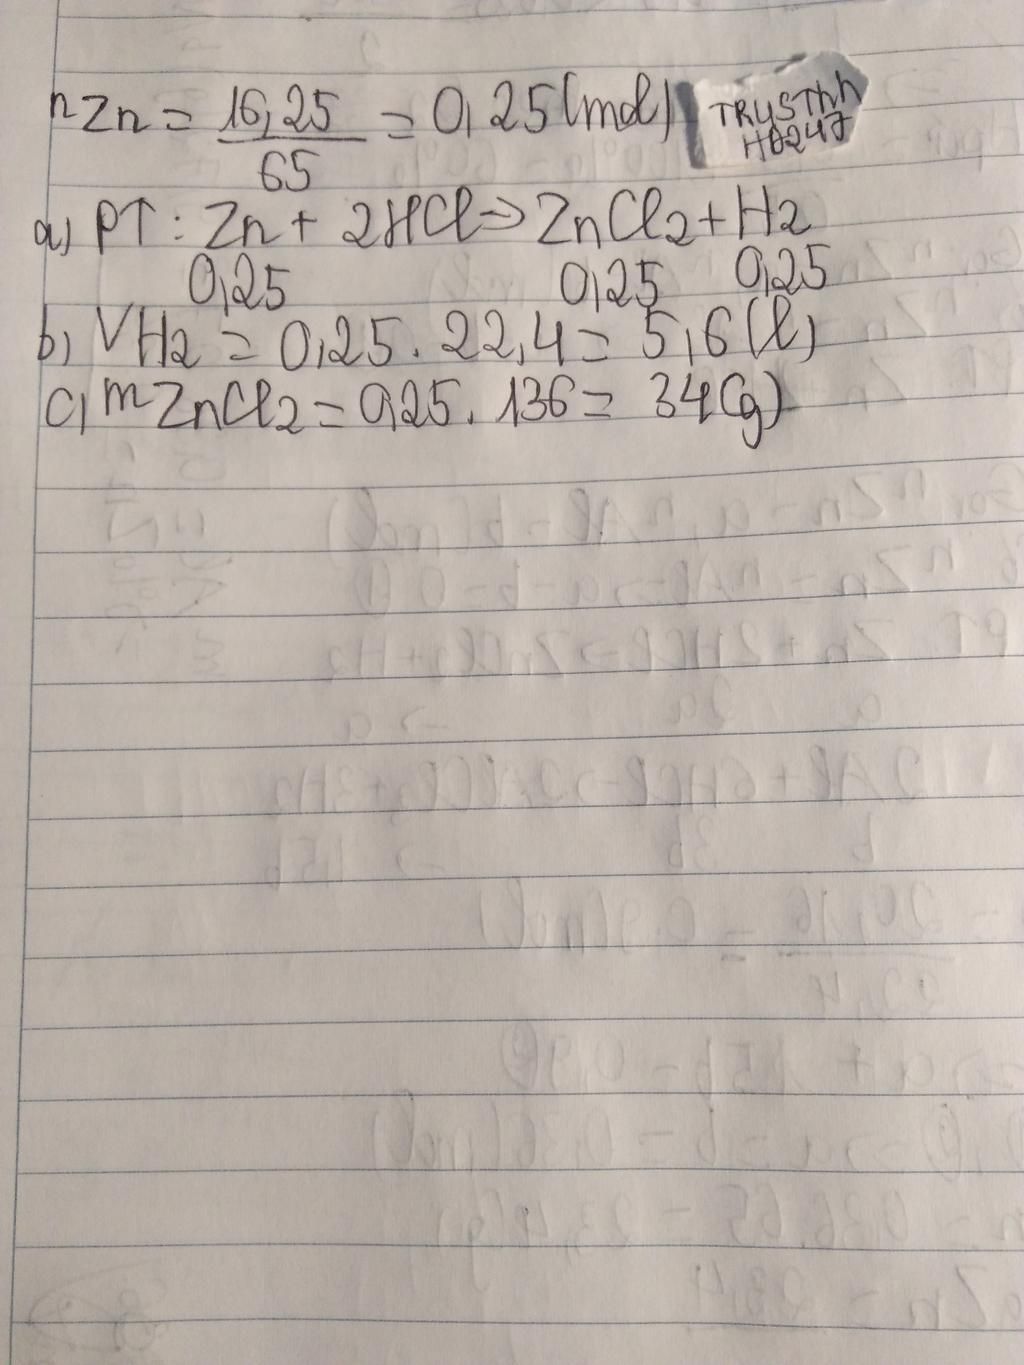 nZn = 16,25/65 = 0,25(mol) TRUSTnn
HD247
a) PT: Zn + 2HCl => ZnCl2 + H2
0,25 0,25 0,25
b) VH2 = 0,25. 22,4 = 5,6(l)
c) mZnCl2 = 0,25. 136 = 34(g)